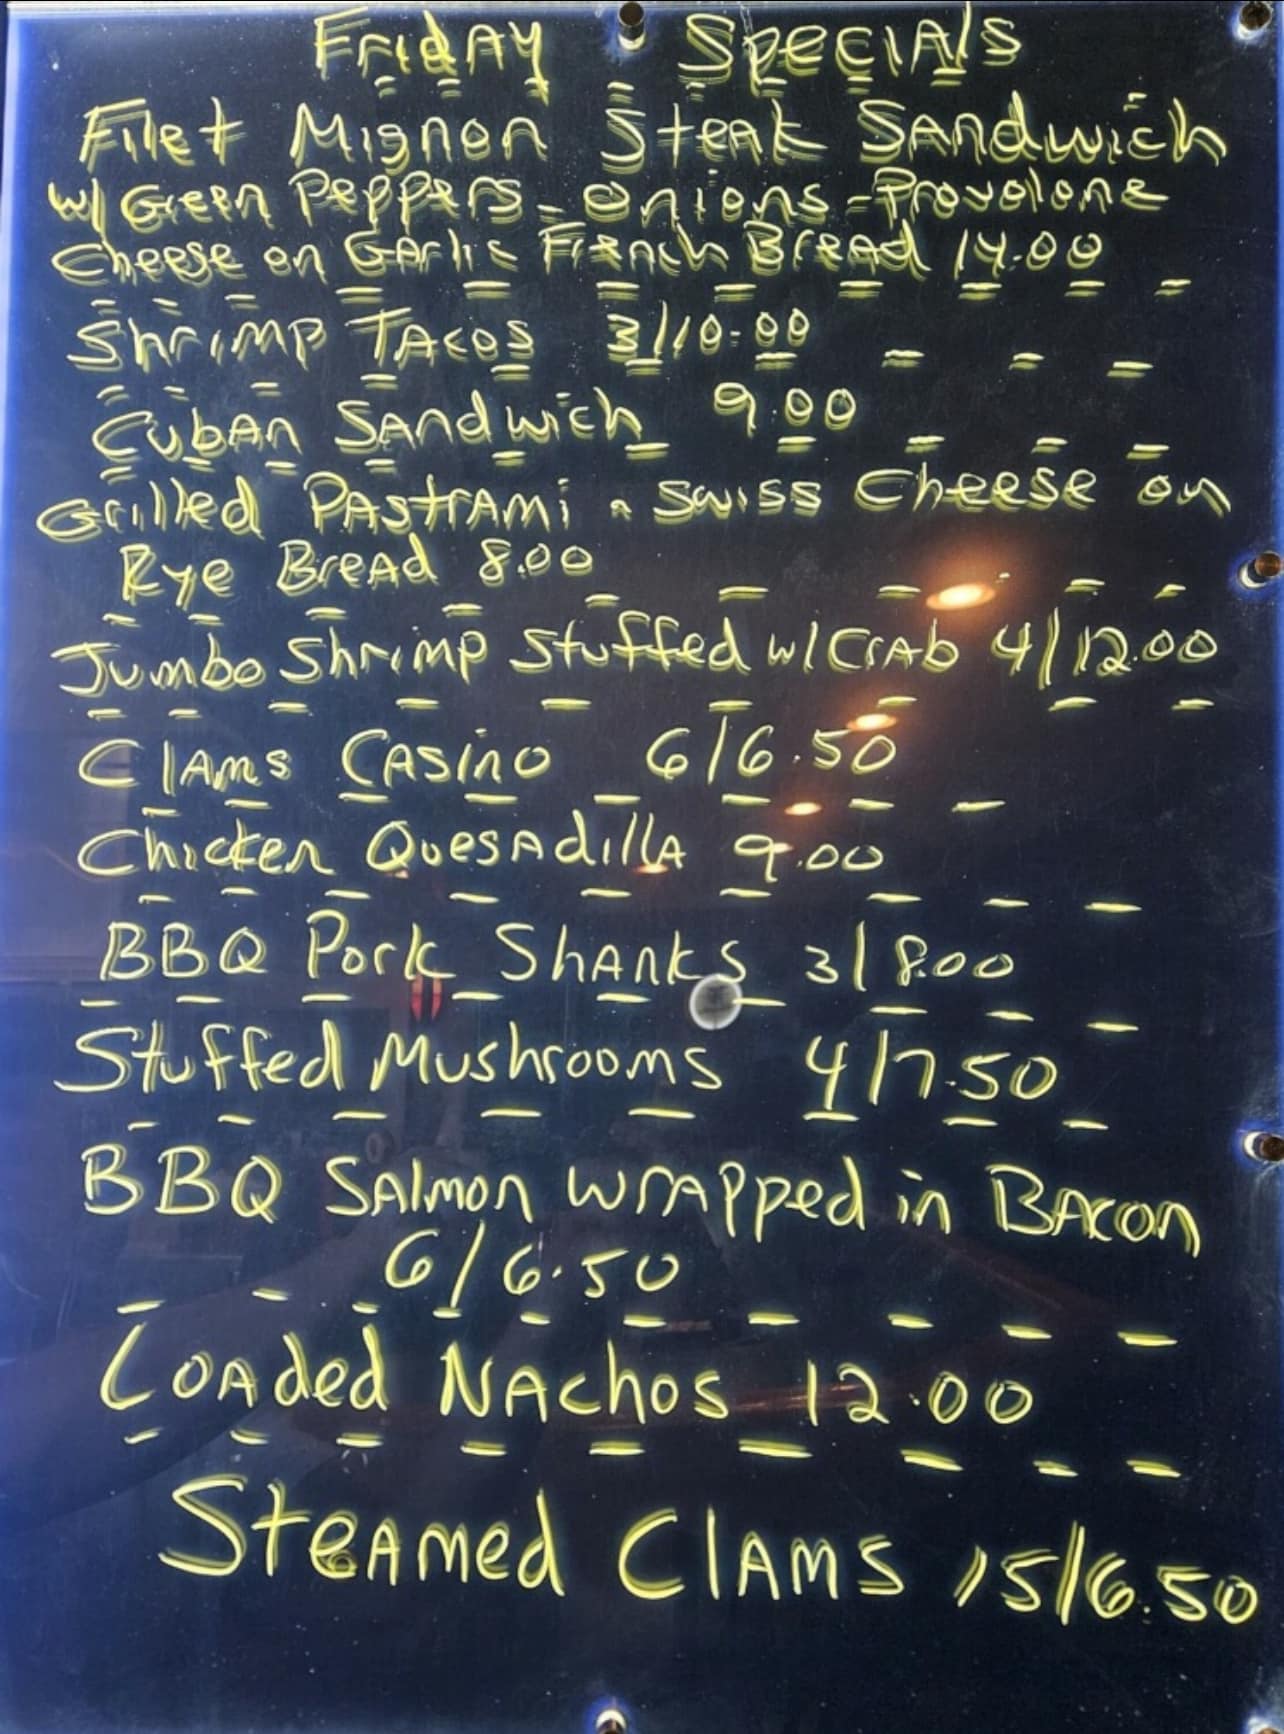 Friday Specials
Filet Mignon Steak Sandwich
w/ Green Peppers - Onions - Provolone
Cheese on Garlic French Bread 14.00
Shrimp Tacos 3/10.00
Cuban Sandwich 9.00
Grilled Pastrami n Swiss Cheese on
Rye Bread 8.00
Jumbo Shrimp Stuffed w/ Crab 4/12.00
Clams Casino 6/6.50
Chicken Quesadilla 9.00
BBQ Pork Shanks 3/8.00
Stuffed Mushrooms 4/7.50
BBQ Salmon wrapped in Bacon
6/6.50
Loaded Nachos 12.00
Steamed Clams 15/6.50